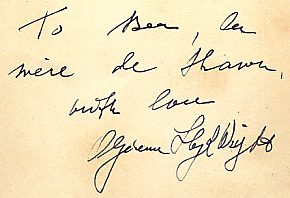 To Bea, la
mère de Shawn,
with love
Lloyd Wright